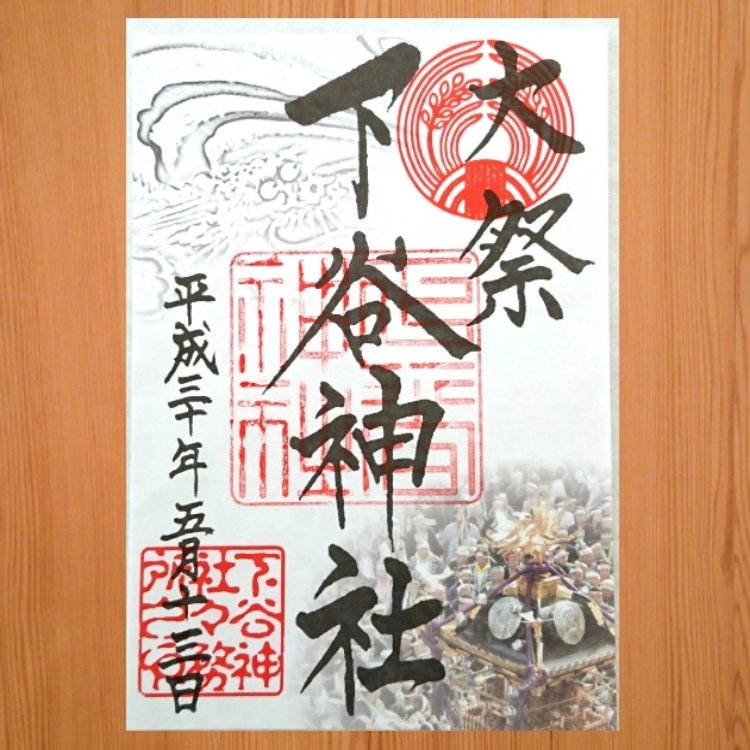 大祭
下谷神社
平成三十年五月十三日
下谷神
社々務
所之印